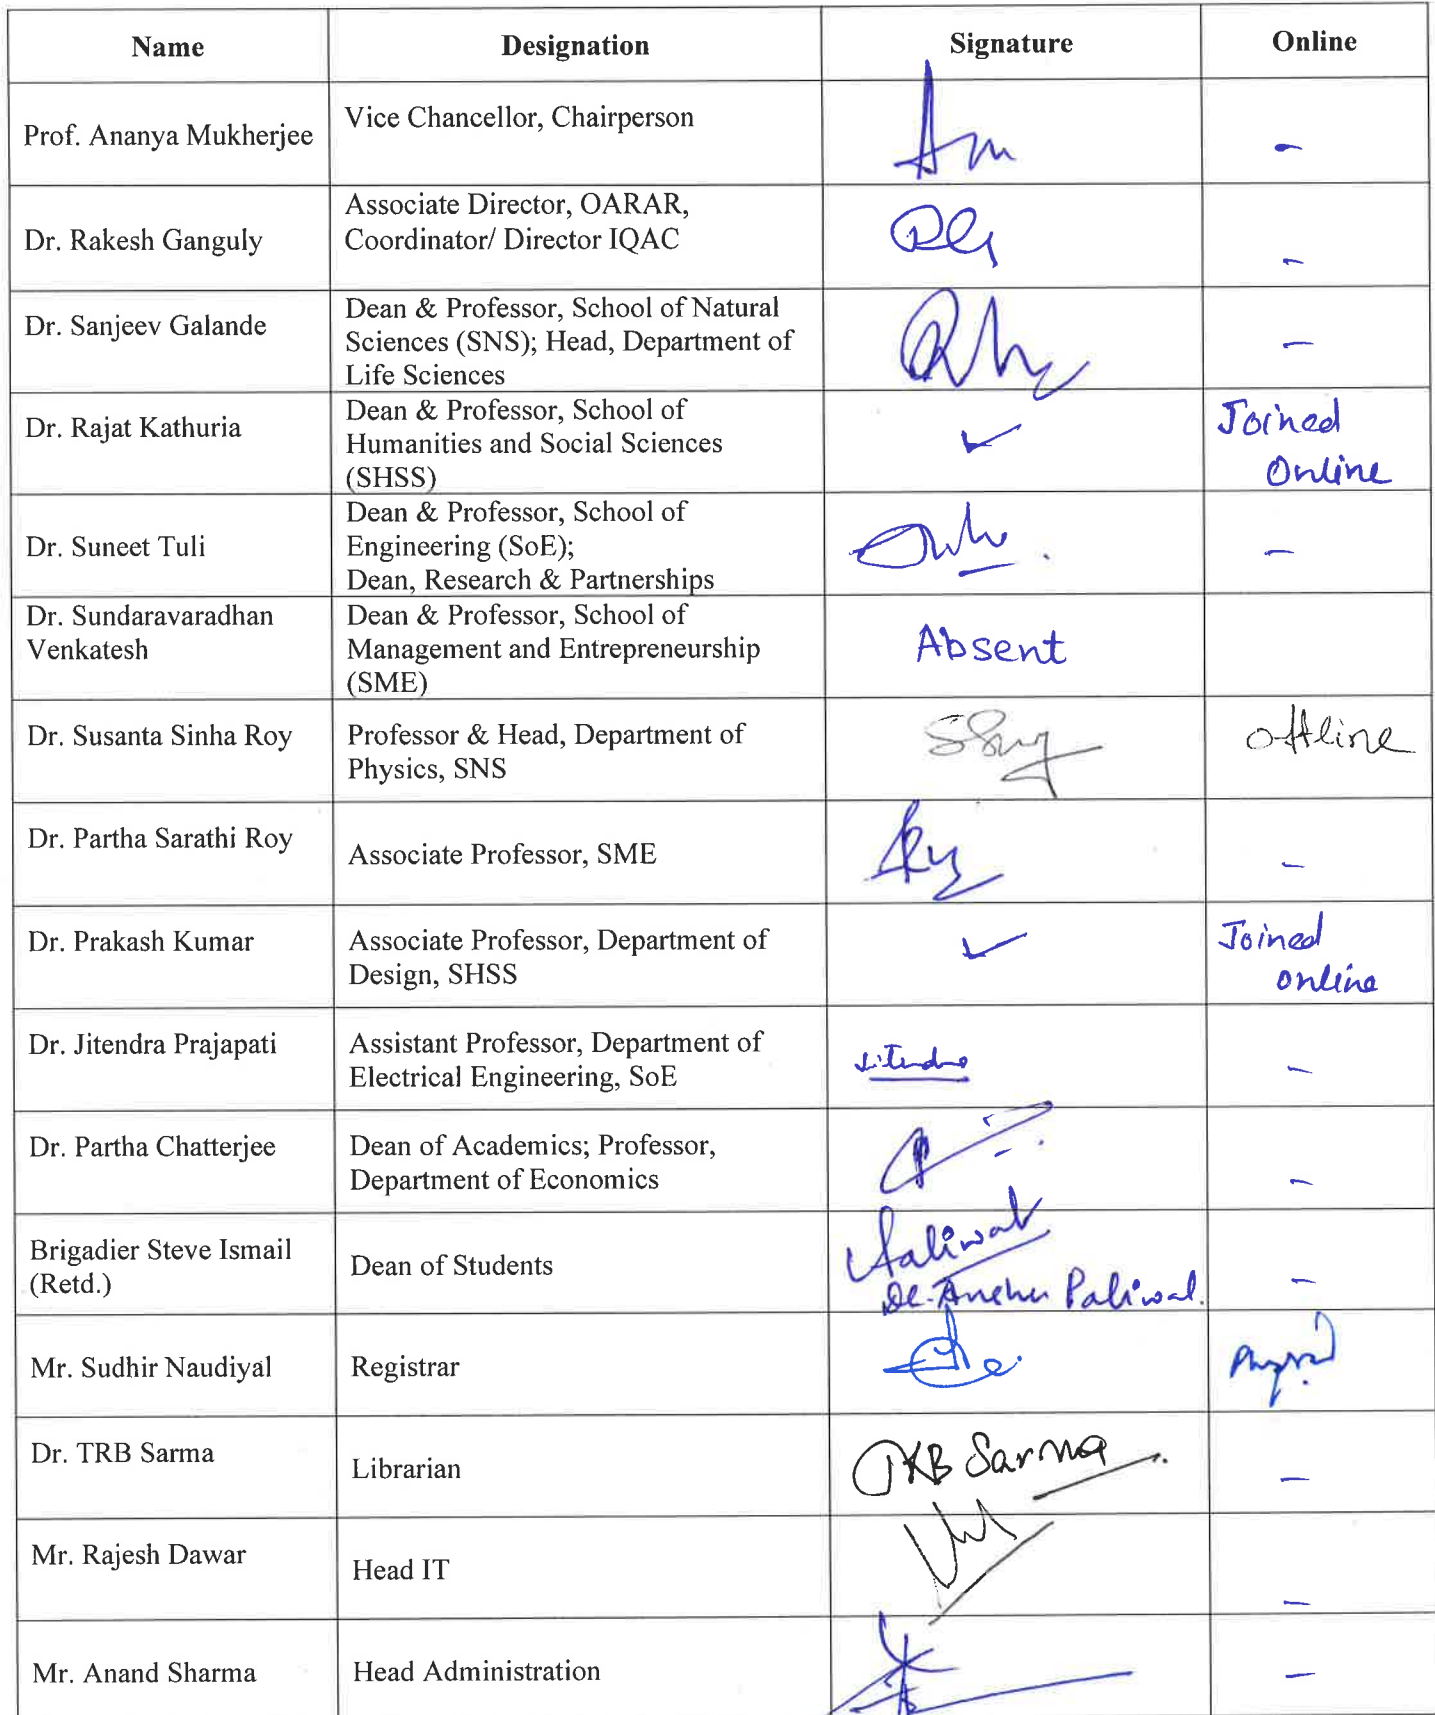 Name Designation Signature Online
Prof. Ananya Mukherjee
Vice Chancellor, Chairperson
-
Dr. Rakesh Ganguly
Associate Director, OARAR,
Coordinator/ Director IQAC
-
Dr. Sanjeev Galande
Dean & Professor, School of Natural
Sciences (SNS); Head, Department of
Life Sciences
-
Dr. Rajat Kathuria
Dean & Professor, School of
Humanities and Social Sciences
(SHSS)
✓
Joined
Online
Dr. Suneet Tuli
Dean & Professor, School of
Engineering (SoE);
Dean, Research & Partnerships
-
Dr. Sundaravaradhan
Venkatesh
Dean & Professor, School of
Management and Entrepreneurship
(SME)
Absent
Dr. Susanta Sinha Roy
Professor & Head, Department of
Physics, SNS
offline
Dr. Partha Sarathi Roy
Associate Professor, SME
-
Dr. Prakash Kumar
Associate Professor, Department of
Design, SHSS
✓
Joined
online
Dr. Jitendra Prajapati
Assistant Professor, Department of
Electrical Engineering, SoE
Jitendra
-
Dr. Partha Chatterjee
Dean of Academics; Professor,
Department of Economics
-
Brigadier Steve Ismail
(Retd.)
Dean of Students
Paliwal.
-
Mr. Sudhir Naudiyal
Registrar
Dr. TRB Sarma
Librarian
TRB Sarma
-
Mr. Rajesh Dawar
Head IT
-
Mr. Anand Sharma
Head Administration
-